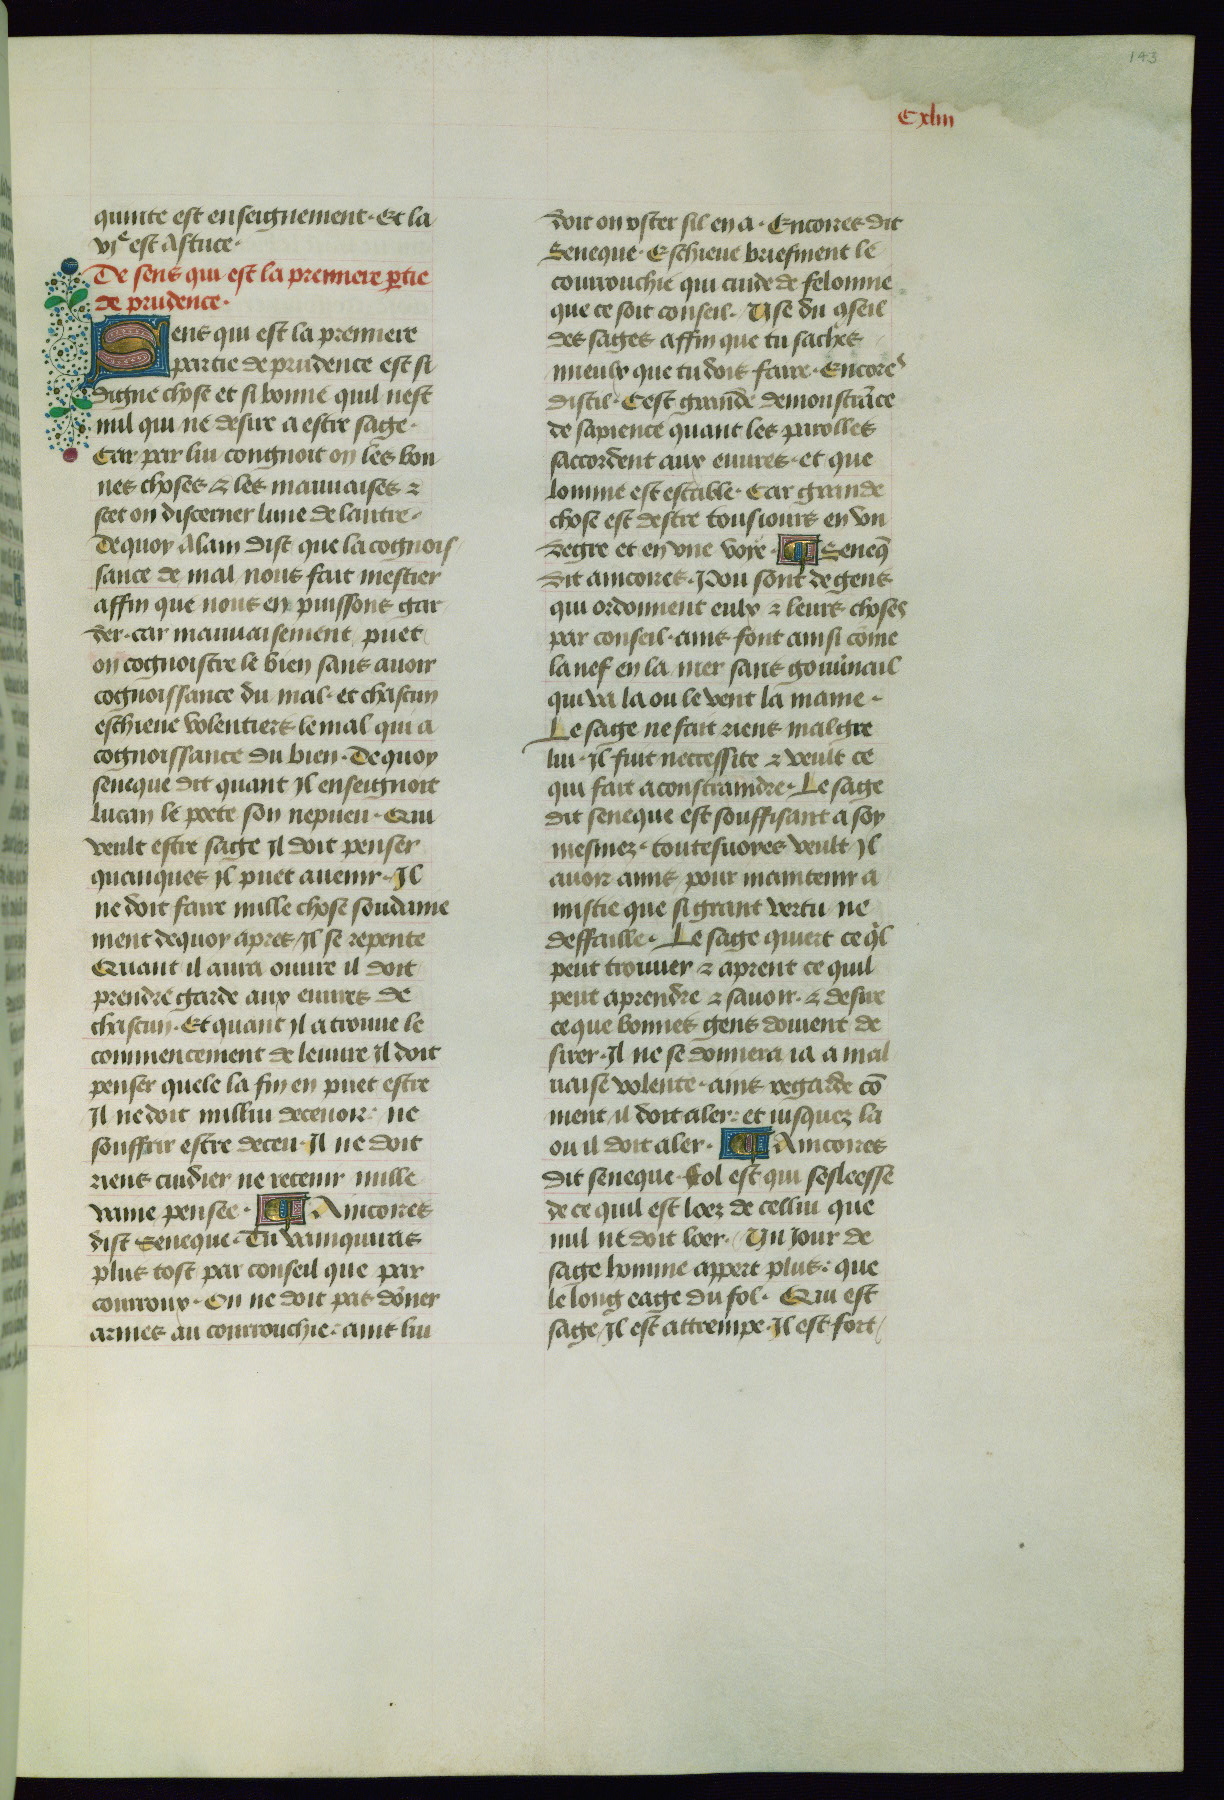 143
Cxliii
quinte est enseignement. Et la
vje est Astuce.
De sens qui est la premiere ꝑtie
de prudence.
Sens qui est la premiere
partie de prudence est si
digne chose et si bonne quil nest
nul qui ne desire a estre sage.
Car par lui congnoit on les bon
nes choses & les mauuaises &
scet on discerner lune de lautre.
Dequoy Alain dist que la cognois
sance de mal nous fait mestier
affin que nous en puissons gar
der. car mauuaisement puet
on cognoistre le bien sans auoir
cognoissance du mal. et chascun
eschieue volentiers le mal qui a
cognoissance du bien. Dequoy
seneque dit quant Jl enseignoit
lucan le poete son nepueu. Qui
veult estre sage Jl doit penser
quanques Jl puet auenir. Jl
ne doit faire nulle chose soudaine
ment dequoy apres Jl se repente
Quant il aura ouure il doit
prendre garde aux euures de
chascun. Et quant Jl a trouue le
commencement de leuure Jl doit
penser quele la fin en puet estre
Jl ne doit nullui deceuoir. ne
souffrir estre deceu. Jl ne doit
riens cuidier ne retenir nulle
vaine pensee. ¶ Aincores
dist Seneque. Tu vainquiras
plus tost par conseil que par
courroux. On ne doit pas dōner
armes au courrouchie. aint lui
doit on oster sil en a. Encores dit
Seneque. Eschieue briefment le
courrouchie qui cuide de felonnie
que ce soit conseil. Use du ꝯseil
des sages affin que tu saches
mieulx que tu dois faire. Encores
dist il. Cest grande demonstrāce
de sapience quant les parolles
saccordent aux euures. et que
lomme est estable. Car grande
chose est destre tousiours en vn
degre et en vne voye. ¶ Seneq̄
dit aincores. Pou sont de gens
qui ordonnent eulx & leurs choses
par conseil. ains font ainsi cōme
la nef en la mer sans gouuˀnail
qui va la ou le vent la maine.
Le sage ne fait riens malgre
lui. Jl fuit neccessite & veult ce
qui fait a constraindre. Le sage
dit seneque est souffisant a soy
mesmez. toutesuoies veult Jl
auoir amis pour maintenir a
mistie que si grant vertu ne
deffaille. Le sage quiert ce q̄l
peut trouuer & aprent ce quil
peut aprendre & sauoir. & desire
ce que bonnes gens doiuent de
sirer. Jl ne se donnera ia a mal
uaise volente. ains regarde cō
ment il doit aler. et iusquez la
ou il doit aler. ¶ Aincores
dit seneque. fol est qui sesleesse
de ce quil est loez de cellui que
nul ne doit loer. Un Jour de
sage homme appert plus. que
le long eage du fol. Qui est
sage Jl est attrempe. Jl est fort